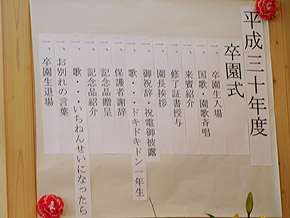 平成三十年度
卒園式
一、卒園生入場
一、国歌・園歌斉唱
一、来賓紹介
一、修了証書授与
一、園長挨拶
一、御祝辞・祝電御披露
一、歌・・・ドキドキドン一年生
一、保護者謝辞
一、記念品贈呈
一、記念品紹介
一、歌・・・いちねんせいになったら
一、お別れの言葉
一、卒園生退場